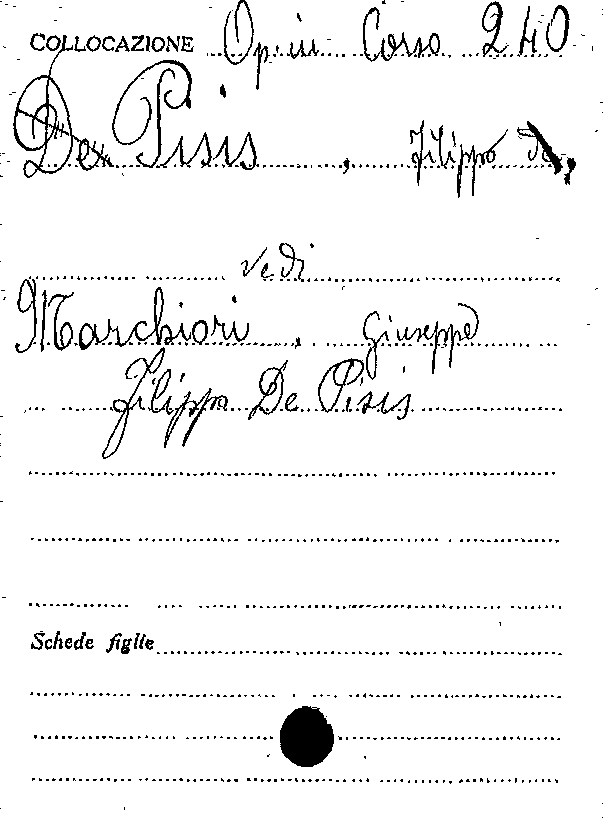 COLLOCAZIONE Op. in Corso 240
De Pisis, Filippo de,
vedi
Marchiori, Giuseppe
Filippo De Pisis
Schede figlie